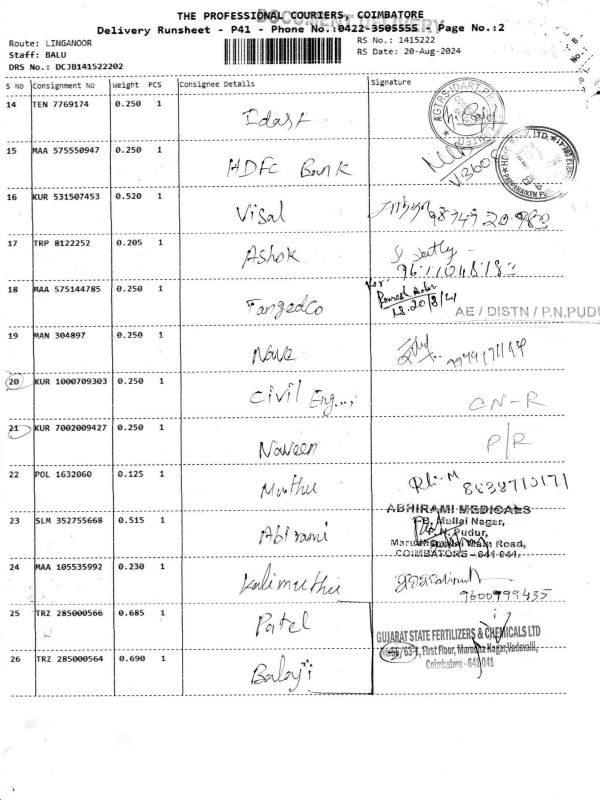 THE PROFESSIONAL COURIERS, COIMBATORE
DOCUMENT DELIVERY
Delivery Runsheet - P41 - Phone No.:0422-3505555 - Page No.:2
Route: LINGANOOR
Staff: BALU
DRS No.: DCJB141522202
RS No.: 1415222
RS Date: 20-Aug-2024
S No Consignment No Weight PCS Consignee Details Signature
14 TEN 7769174 0.250 1 Idart
15 MAA 575550947 0.250 1 HDFC Bank
16 KUR 531507453 0.520 1 Visal
17 TRP 8122252 0.205 1 Ashok
18 MAA 575144785 0.250 1 TangedCo
20/8/24
AE / DISTN / P.N.PUDU
19 MAN 304897 0.250 1
20 KUR 1000709303 0.250 1 Civil Eng..., CN-R
21 KUR 7002009427 0.250 1 Naveen P/R
22 POL 1632060 0.125 1 Muthu
23 SLM 352755668 0.515 1 Abirami
ABHIRAMI MEDICALS
Mullai Nagar,
P.N. Pudur,
Main Road,
COIMBATORE - 641 041.
24 MAA 105535992 0.230 1 Kalimuthu 9600999435
25 TRZ 285000566 0.685 1 Patel
GUJARAT STATE FERTILIZERS & CHEMICALS LTD
First Floor, Marutha Nagar, Vadavalli,
Coimbatore - 641 041
26 TRZ 285000564 0.690 1 Balaji